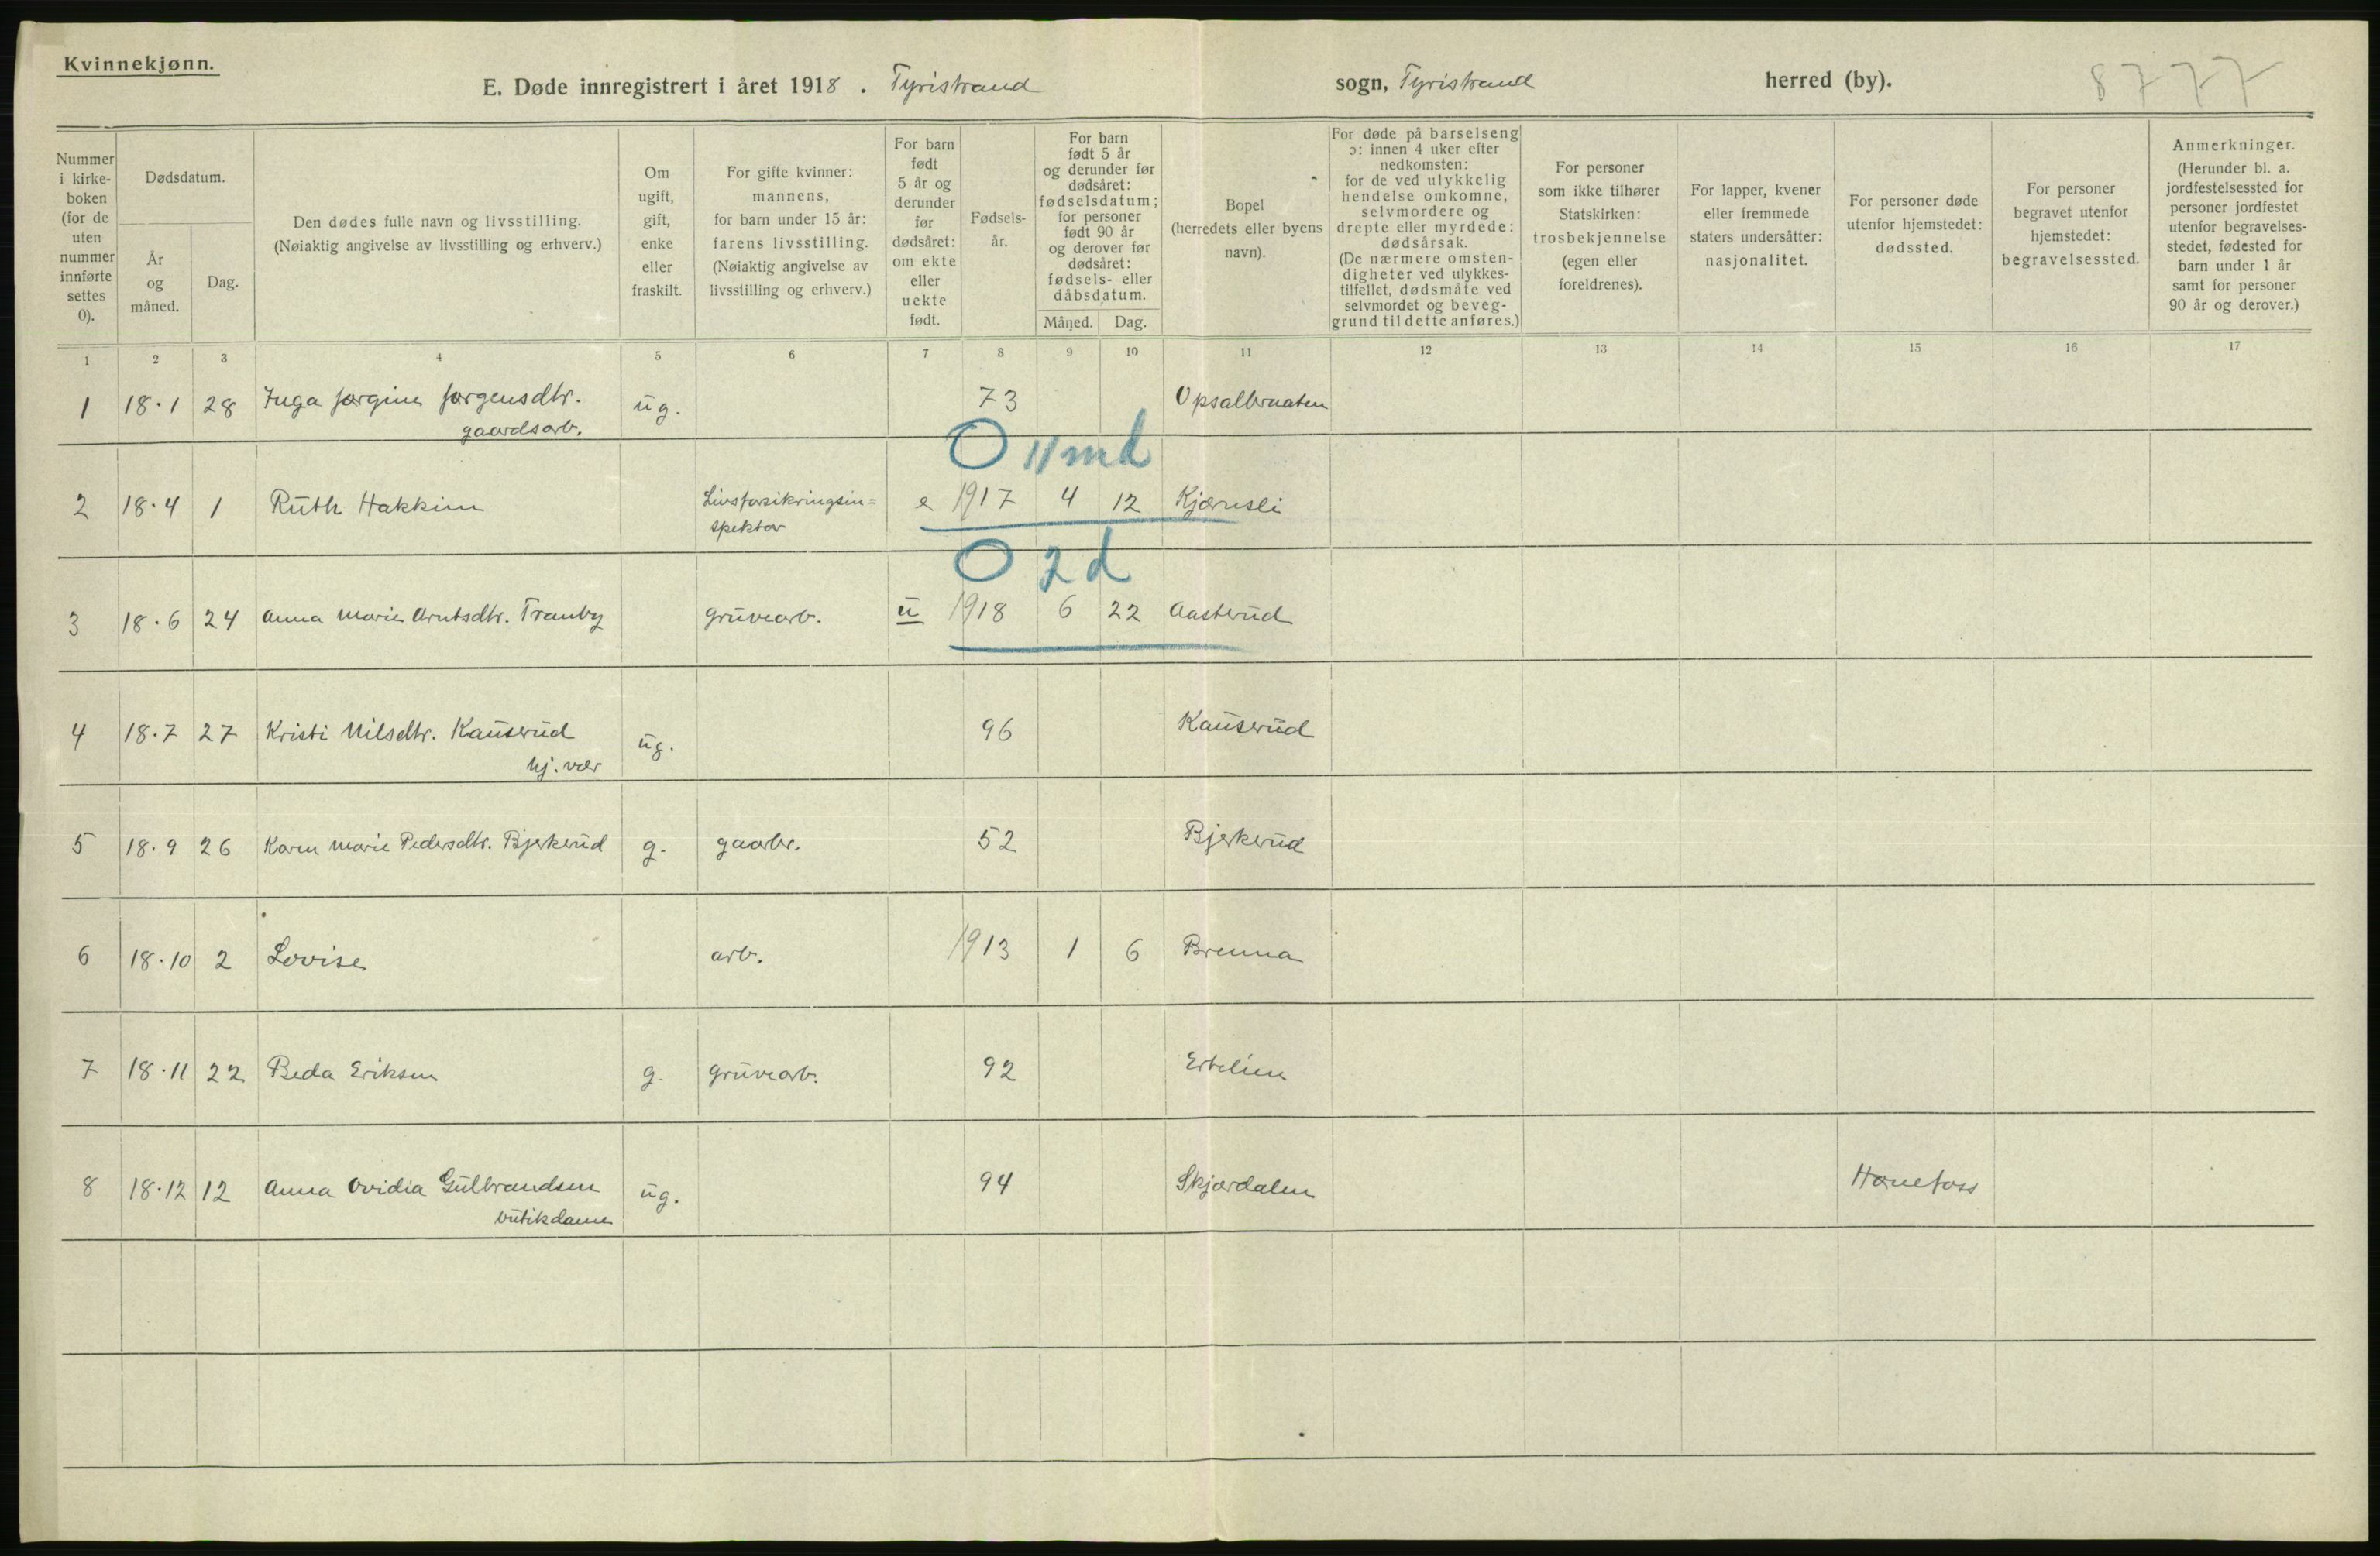 Kvinnekjønn.
E. Døde innregistrert i året 1918 . Tyristrand sogn, Tyristrand herred (by). 8777
Nummer i kirke- boken (for de uten nummer innførte settes 0).
Dødsdatum.
År og måned.
Dag.
Den dødes fulle navn og livsstilling.
(Nøiaktig angivelse av livsstilling og erhverv.)
Om ugift, gift, enke eller fraskilt.
For gifte kvinner: mannens, for barn under 15 år: farens livsstilling. (Nøiaktig angivelse av livsstilling og erhverv.)
For barn født 5 år og derunder før dødsåret: om ekte eller uekte født.
Fødsels- år.
For barn født 5 år og derunder før dødsåret: fødselsdatum; for personer født 90 år og derover før dødsåret: fødsels- eller dåbsdatum.
Måned. Dag.
Bopel (herredets eller byens navn).
For døde på barselseng ɔ: innen 4 uker efter nedkomsten: for de ved ulykkelig hendelse omkomne, selvmordere og drepte eller myrdede: dødsårsak. (De nærmere omsten- digheter ved ulykkes- tilfellet, dødsmåte ved selvmordet og beveg- grund til dette anføres.)
For personer som ikke tilhører Statskirken: trosbekjennelse (egen eller foreldrenes).
For lapper, kvener eller fremmede staters undersåtter: nasjonalitet.
For personer døde utenfor hjemstedet: dødssted.
For personer begravet utenfor hjemstedet: begravelsessted.
Anmerkninger. (Herunder bl. a. jordfestelsessted for personer jordfestet utenfor begravelses- stedet, fødested for barn under 1 år samt for personer 90 år og derover.)
1 2 3 4 5 6 7 8 9 10 11 12 13 14 15 16 17
1 18.1 28 Inga Jørgine Jørgensdtr. ug. 73 Opsalbraaten
gaardsarb.
O 11 md
2 18.4 1 Ruth Hakkim Livsforsikringsin= e 1917 4 12 Kjærnsli
spektør
O 2 d
3 18.6 24 Anna Marie Arntsdtr. Tranby gruvearb. u 1918 6 22 Aasterud
4 18.7 27 Kristi Nilsdtr. Kauserud ug. 96 Kauserud
hj. vær
5 18.9 26 Karen Marie Pedersdtr. Bjerkerud g. gaarbr. 52 Bjerkerud
6 18.10 2 Lovise arb. 1913 1 6 Brenna
7 18.11 22 Beda Eriksen g. gruvearb. 92 Ertelien
8 18.12 12 Anna Ovidia Gulbrandsen ug. 94 Skjærdalen Hønefoss
butikdame